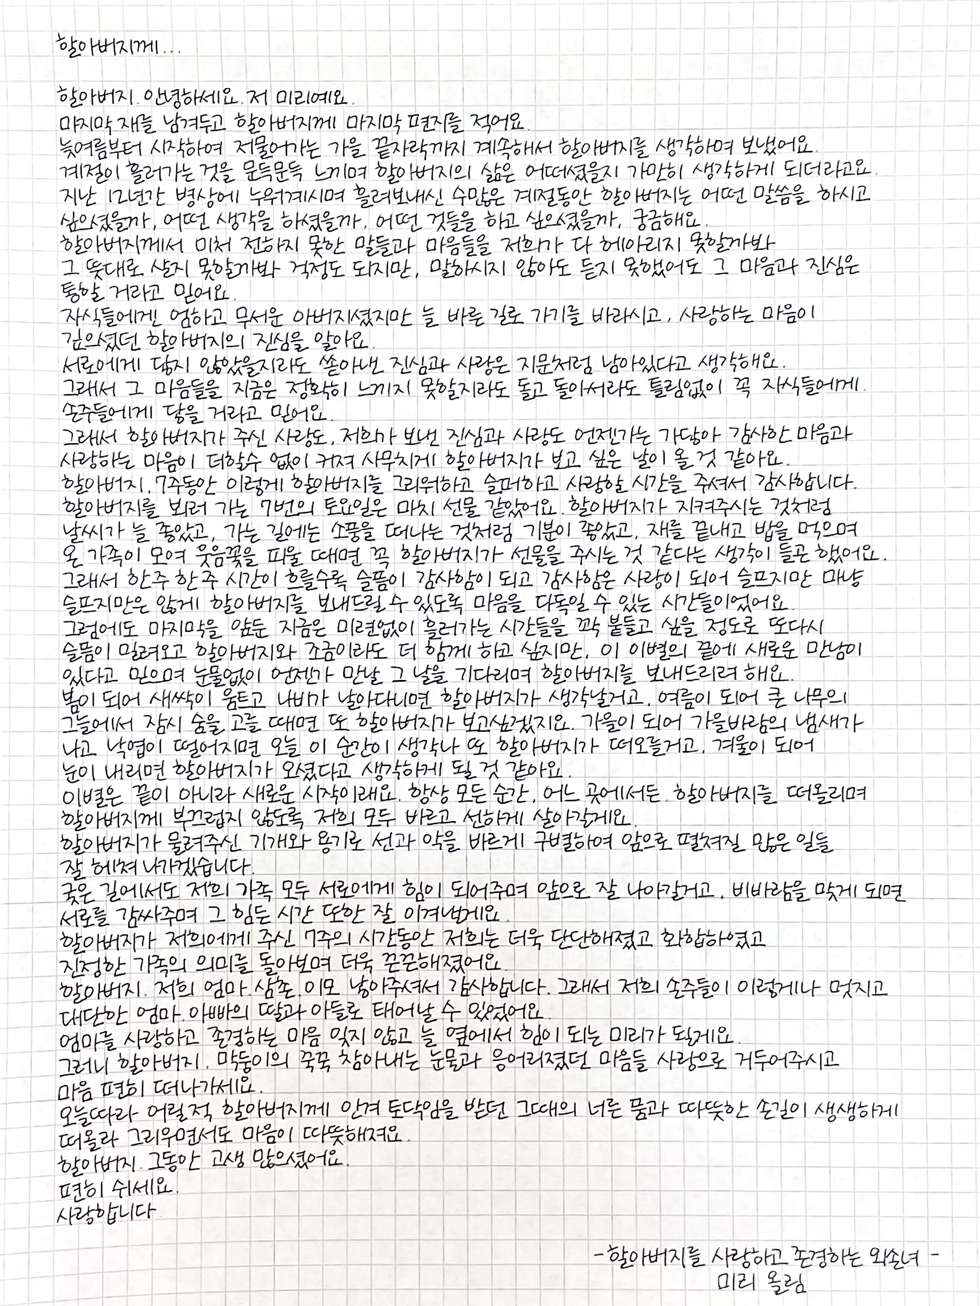 할아버지께...
할아버지. 안녕하세요. 저 미리예요.
마지막 재를 남겨두고 할아버지께 마지막 편지를 적어요.
늦여름부터 시작하여 저물어가는 가을 끝자락까지 계속해서 할아버지를 생각하며 보냈어요.
계절이 흘러가는 것을 문득문득 느끼며 할아버지의 삶은 어떠셨을지 가만히 생각하게 되더라고요.
지난 12년간 병상에 누워계시며 흘려보내신 수많은 계절동안 할아버지는 어떤 말씀을 하시고
싶으셨을까, 어떤 생각을 하셨을까, 어떤 것들을 하고 싶으셨을까, 궁금해요.
할아버지께서 미처 전하지 못한 말들과 마음들을 저희가 다 헤아리지 못할까봐
그 뜻대로 살지 못할까봐 걱정도 되지만, 말하시지 않아도 듣지 못했어도 그 마음과 진심은
통할 거라고 믿어요.
자식들에겐 엄하고 무서운 아버지셨지만 늘 바른 길로 가기를 바라시고, 사랑하는 마음이
깊으셨던 할아버지의 진심을 알아요.
서로에게 닿지 않았을지라도 쏟아낸 진심과 사랑은 지문처럼 남아있다고 생각해요.
그래서 그 마음들을 지금은 정확히 느끼지 못할지라도 돌고 돌아서라도 틀림없이 꼭 자식들에게.
손주들에게 닿을 거라고 믿어요.
그래서 할아버지가 주신 사랑도, 저희가 보낸 진심과 사랑도 언젠가는 가닿아 감사한 마음과
사랑하는 마음이 더할수 없이 커져 사무치게 할아버지가 보고 싶은 날이 올 것 같아요.
할아버지, 7주동안 이렇게 할아버지를 그리워하고 슬퍼하고 사랑할 시간을 주셔서 감사합니다.
할아버지를 뵈러 가는 7번의 토요일은 마치 선물 같았어요. 할아버지가 지켜주시는 것처럼
날씨가 늘 좋았고, 가는 길에는 소풍을 떠나는 것처럼 기분이 좋았고, 재를 끝내고 밥을 먹으며
온 가족이 모여 웃음꽃을 피울 때면 꼭 할아버지가 선물을 주시는 것 같다는 생각이 들곤 했어요.
그래서 한주 한주 시간이 흐를수록 슬픔이 감사함이 되고 감사함은 사랑이 되어 슬프지만 마냥
슬프지만은 않게 할아버지를 보내드릴 수 있도록 마음을 다독일 수 있는 시간들이었어요.
그럼에도 마지막을 앞둔 지금은 미련없이 흘러가는 시간들을 꽉 붙들고 싶을 정도로 또다시
슬픔이 밀려오고 할아버지와 조금이라도 더 함께 하고 싶지만, 이 이별의 끝에 새로운 만남이
있다고 믿으며 눈물없이 언젠가 만날 그 날을 기다리며 할아버지를 보내드리려 해요.
봄이 되어 새싹이 움트고 나비가 날아다니면 할아버지가 생각날거고, 여름이 되어 큰 나무의
그늘에서 잠시 숨을 고를 때면 또 할아버지가 보고싶겠지요. 가을이 되어 가을바람의 냄새가
나고 낙엽이 떨어지면 오늘 이 순간이 생각나 또 할아버지가 떠오를거고, 겨울이 되어
눈이 내리면 할아버지가 오셨다고 생각하게 될 것 같아요.
이별은 끝이 아니라 새로운 시작이래요. 항상 모든 순간, 어느 곳에서든 할아버지를 떠올리며
할아버지께 부끄럽지 않도록 저희 모두 바르고 선하게 살아갈게요.
할아버지가 물려주신 기개와 용기로 선과 악을 바르게 구별하여 앞으로 펼쳐질 많은 일들
잘 헤쳐 나가겠습니다.
궂은 길에서도 저희 가족 모두 서로에게 힘이 되어주며 앞으로 잘 나아갈거고, 비바람을 맞게 되면
서로를 감싸주며 그 힘든 시간 또한 잘 이겨낼게요.
할아버지가 저희에게 주신 7주의 시간동안 저희는 더욱 단단해졌고 화합하였고
진정한 가족의 의미를 돌아보며 더욱 끈끈해졌어요.
할아버지. 저희 엄마.삼촌.이모 낳아주셔서 감사합니다. 그래서 저희 손주들이 이렇게나 멋지고
대단한 엄마.아빠의 딸과 아들로 태어날 수 있었어요.
엄마를 사랑하고 존경하는 마음 잊지 않고 늘 옆에서 힘이 되는 미리가 될게요.
그러니 할아버지. 막둥이의 꾹꾹 참아내는 눈물과 응어리졌던 마음들 사랑으로 거두어주시고
마음 편히 떠나가세요.
오늘따라 어릴적 할아버지께 안겨 토닥임을 받던 그때의 너른 품과 따뜻한 손길이 생생하게
떠올라 그리우면서도 마음이 따뜻해져요.
할아버지. 그동안 고생 많으셨어요.
편히 쉬세요.
사랑합니다
-할아버지를 사랑하고 존경하는 외손녀 -
미리 올림